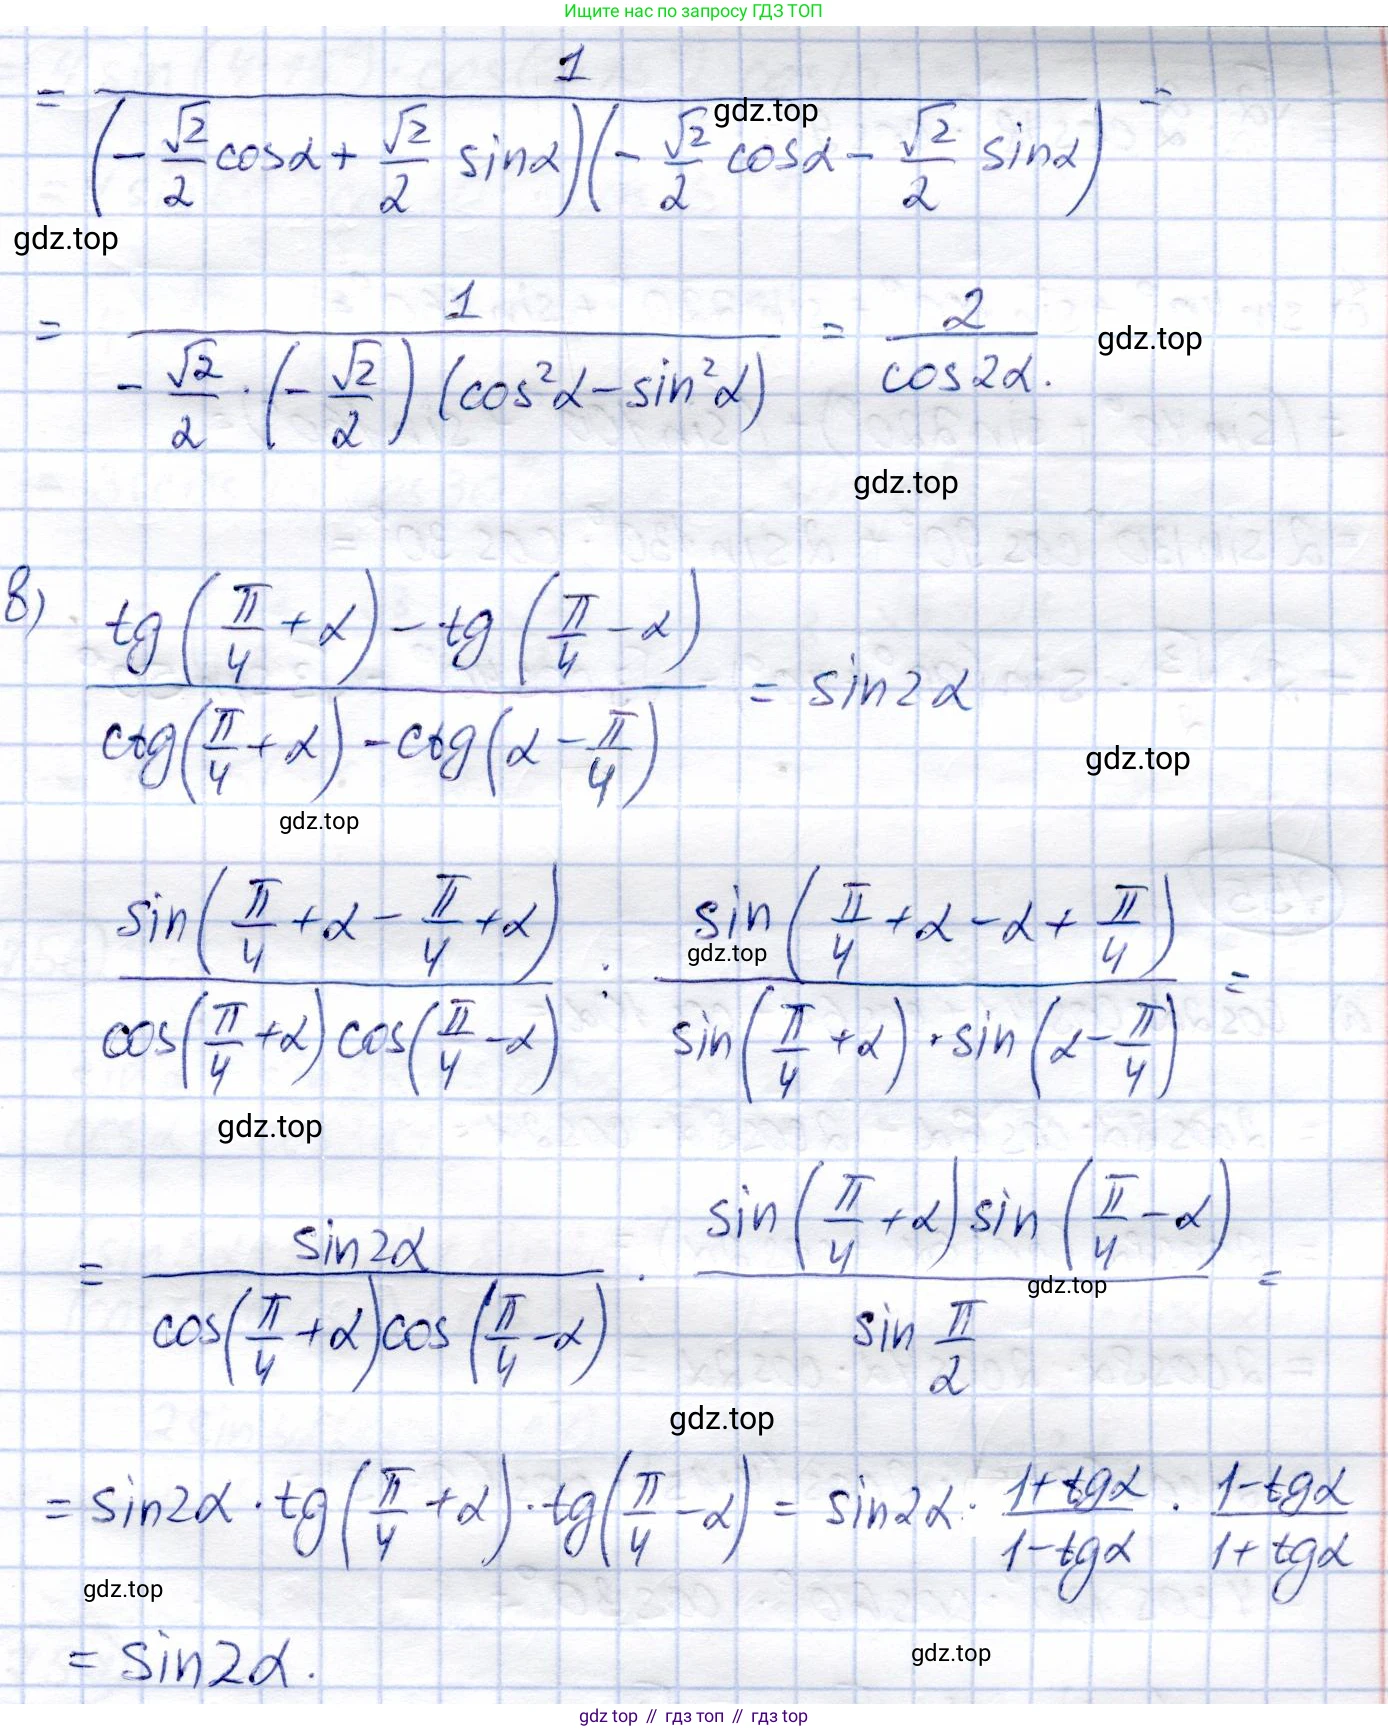 Ищите нас по запросу ГДЗ ТОП
= 1 / ((- √2/2 cosα + √2/2 sinα)(- √2/2 cosα - √2/2 sinα)) =
gdz.top
gdz.top
= 1 / (- √2/2 · (- √2/2) (cos²α - sin²α)) = 2 / cos2α.
gdz.top
gdz.top
в) (tg(π/4 + α) - tg(π/4 - α)) / (ctg(π/4 + α) - ctg(α - π/4)) = sin2α
gdz.top
gdz.top
sin(π/4 + α - π/4 + α) / (cos(π/4 + α) cos(π/4 - α)) : sin(π/4 + α - α + π/4) / (sin(π/4 + α) · sin(α - π/4)) =
gdz.top
gdz.top
= sin2α / (cos(π/4 + α) cos(π/4 - α)) · (sin(π/4 + α) sin(π/4 - α)) / sin π/2 =
gdz.top
gdz.top
= sin2α · tg(π/4 + α) · tg(π/4 - α) = sin2α · (1+tgα)/(1-tgα) · (1-tgα)/(1+tgα)
gdz.top
= sin2α.
gdz.top
gdz top // гдз топ // гдз top